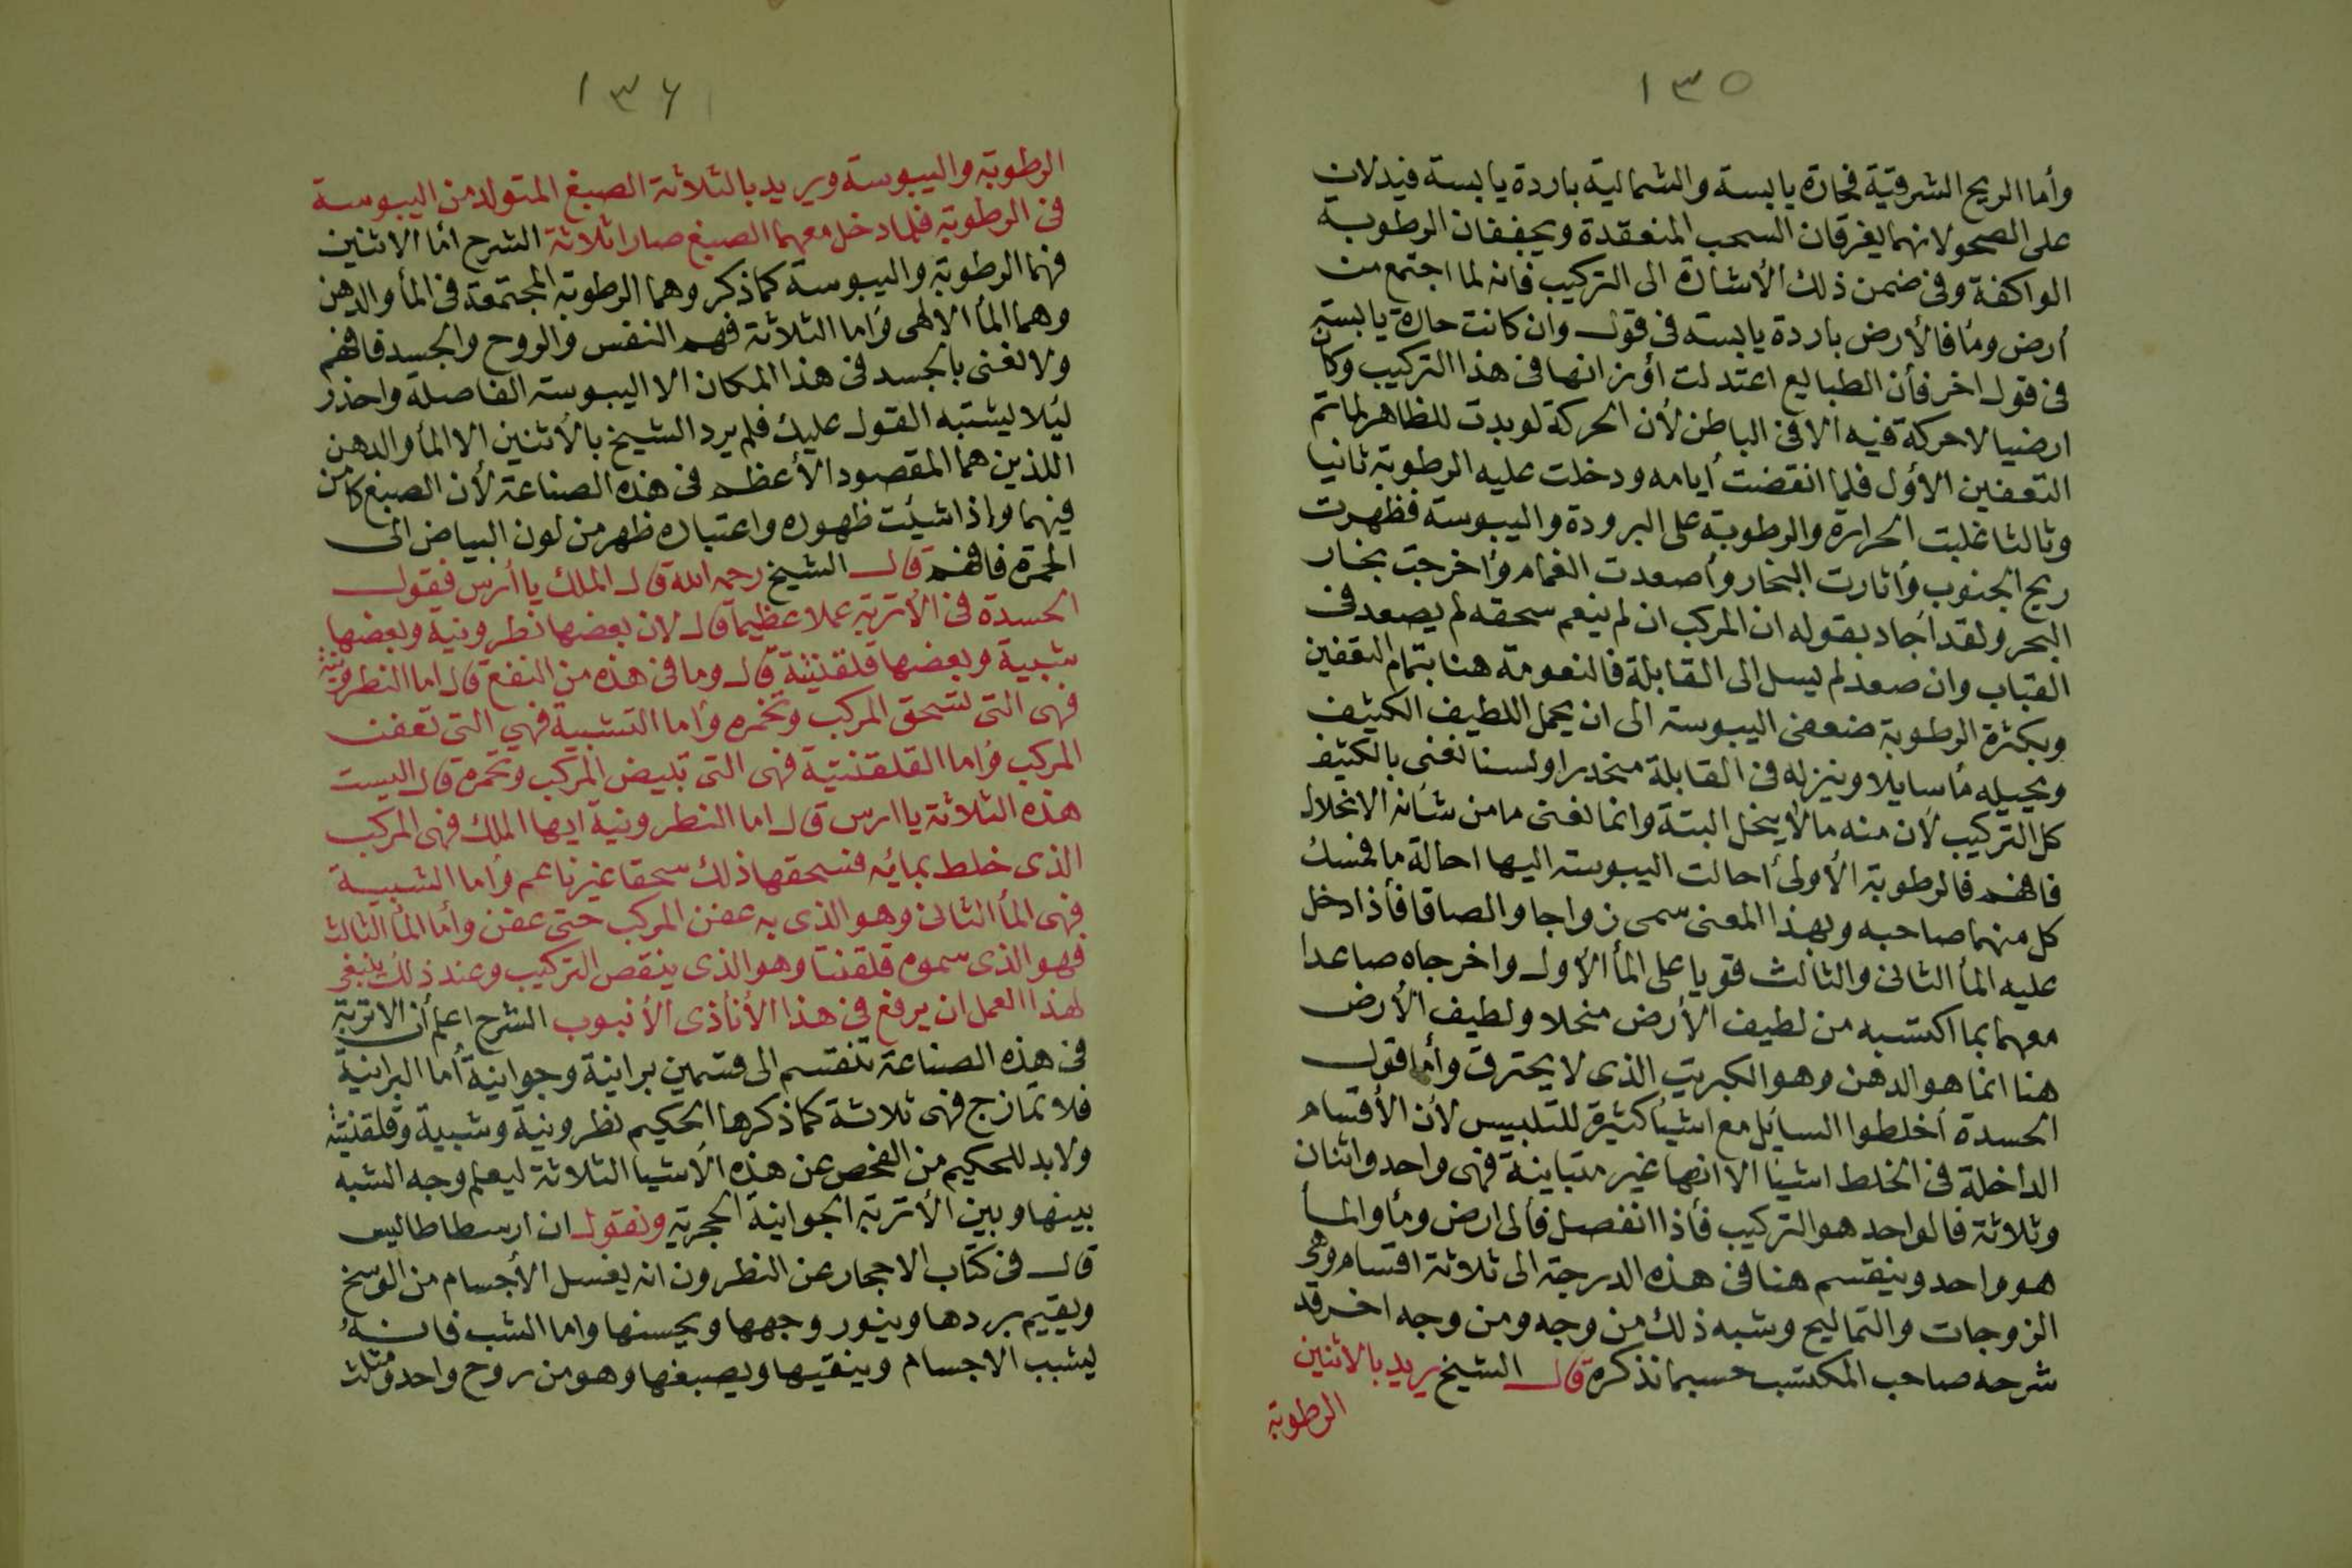 ١٣٥
وأما الريح الشرقية فحارة يابسة والشمالية باردة يابسة فيدلان
على الصحو لانهما يفرقان السحب المنعقدة ويجففان الرطوبة
الواكفة وفى ضمن ذلك الأشارة الى التركيب فانه لما اجتمع من
أرض ومأ فالأرض باردة يابسة فى قول وان كانت حارة يابسة
فى قول اخر فأن الطبايع اعتدلت أوزانها فى هذا التركيب وكان
ارضيا لا حركة فيه الا فى الباطن لأن الحركة لو بدت للظاهر لما تم
التعفين الأول فلما انقضت أيامه ودخلت عليه الرطوبة ثانيا
وثالثا غلبت الحرارة والرطوبة على البرودة واليبوسة فظهرت
ريح الجنوب وأثارت البخار وأصعدت الغمام وأخرجت بخار
البحر ولقد أجاد بقوله ان المركب ان لم ينعم سحقه لم يصعد فى
القباب وان صعد لم يسل الى القابلة فالنعومة هنا بتمام التعفين
وبكثرة الرطوبة ضعفى اليبوسة الى ان يحمل اللطيف الكثيف
ويحيله مأ سايلا وينزله فى القابلة منحدرا ولسنا نعنى بالكثيف
كل التركيب لأن منه ما لا ينحل البتة وانما نعنى ما من شأنه الانحلال
فافهم فالرطوبة الأولى أحالت اليبوسة اليها احالة ما فمسك
كل منهما صاحبه وبهذا المعنى سمى زواجا والصاقا فأذا دخل
عليه المأ الثانى والثالث قويا على المأ الأول واخرجاه صاعدا
معهما بما اكتسبه من لطيف الأرض منحلا ولطيف الأرض
هنا انما هو الدهن وهو الكبريت الذى لا يحترق وأما قول
الحسدة أخلطوا السايل مع اشيأ كثيرة للتلبيس لأن الأقسام
الداخلة فى الخلط اشيا الا انها غير متباينة فهى واحد واثنان
وثلاثة فالواحد هو التركيب فأذا انفصل فألى ارض ومأ والمأ
هو واحد وينقسم هنا فى هذه الدرجة الى ثلاثة اقسام وهى
الزوجات والتماليح وشبه ذلك من وجه ومن وجه اخر قد
شرحه صاحب المكتسب حسبما نذكره قال الشيخ يريد بالاثنين
الرطوبة
١٣٦
الرطوبة واليبوسة ويريد بالثلاثة الصبغ المتولد من اليبوسة
فى الرطوبة فلما دخل معهما الصبغ صارا ثلاثة الشرح أما الاثنين
فهما الرطوبة واليبوسة كما ذكر وهما الرطوبة المجتمعة فى المأ والدهن
وهما المأ الالهى وأما الثلاثة فهم النفس والروح والجسد فافهم
ولا نعنى بالجسد فى هذا المكان الا اليبوسة الفاصلة واحذر
ليلا يشتبه القول عليك فلم يرد الشيخ بالأثنين الا المأ والدهن
اللذين هما المقصود الأعظم فى هذه الصناعة لأن الصبغ كامن
فيهما واذا شيئت ظهوره واعتباره ظهر من لون البياض الى
الحمرة فافهم قال الشيخ رحمه الله قال الملك يا أرس فقول
الحسدة فى الأتربة عملا عظيما قال لان بعضها نطرونية وبعضها
شبية وبعضها قلقنتية قال وما فى هذه من النفع قال اما النطرونية
فهى التى تسحق المركب وتخمره وأما التشبية فهى التى تعفن
المركب وأما القلقنتية فهى التى تبيض المركب وتحمره قال اليست
هذه الثلاثة يا ارس قال اما النطرونية ايها الملك فهى المركب
الذى خلط بمائه فنسحقها ذلك سحقا غير ناعم وأما الشبية
فهى المأ الثانى وهو الذى به عفن المركب حتى عفن وأما المأ الثالث
فهو الذى سموه قلقنتا وهو الذى ينقص التركيب وعند ذلك ينبغى
لهذا العمل ان يرفع فى هذا الأنأ ذى الأنبوب الشرح اعلم أن الاتربة
فى هذه الصناعة تنقسم الى قسمين برانية وجوانية أما البرانية
فلا تمازج فهى ثلاثة كما ذكرها الحكيم نطرونية وشبية وقلقنتية
ولابد للحكيم من الفحص عن هذه الأشيا الثلاثة ليعلم وجه الشبه
بينها وبين الأتربة الجوانية الحجرية ونقول ان ارسطاطاليس
قال فى كتاب الاحجار عن النطرون انه يغسل الأجسام من الوسخ
ويقيم بردها وينور وجهها ويحسنها واما الشب فانه
يشبب الاجسام وينقيها ويصبغها وهو من روح واحد ومثلث